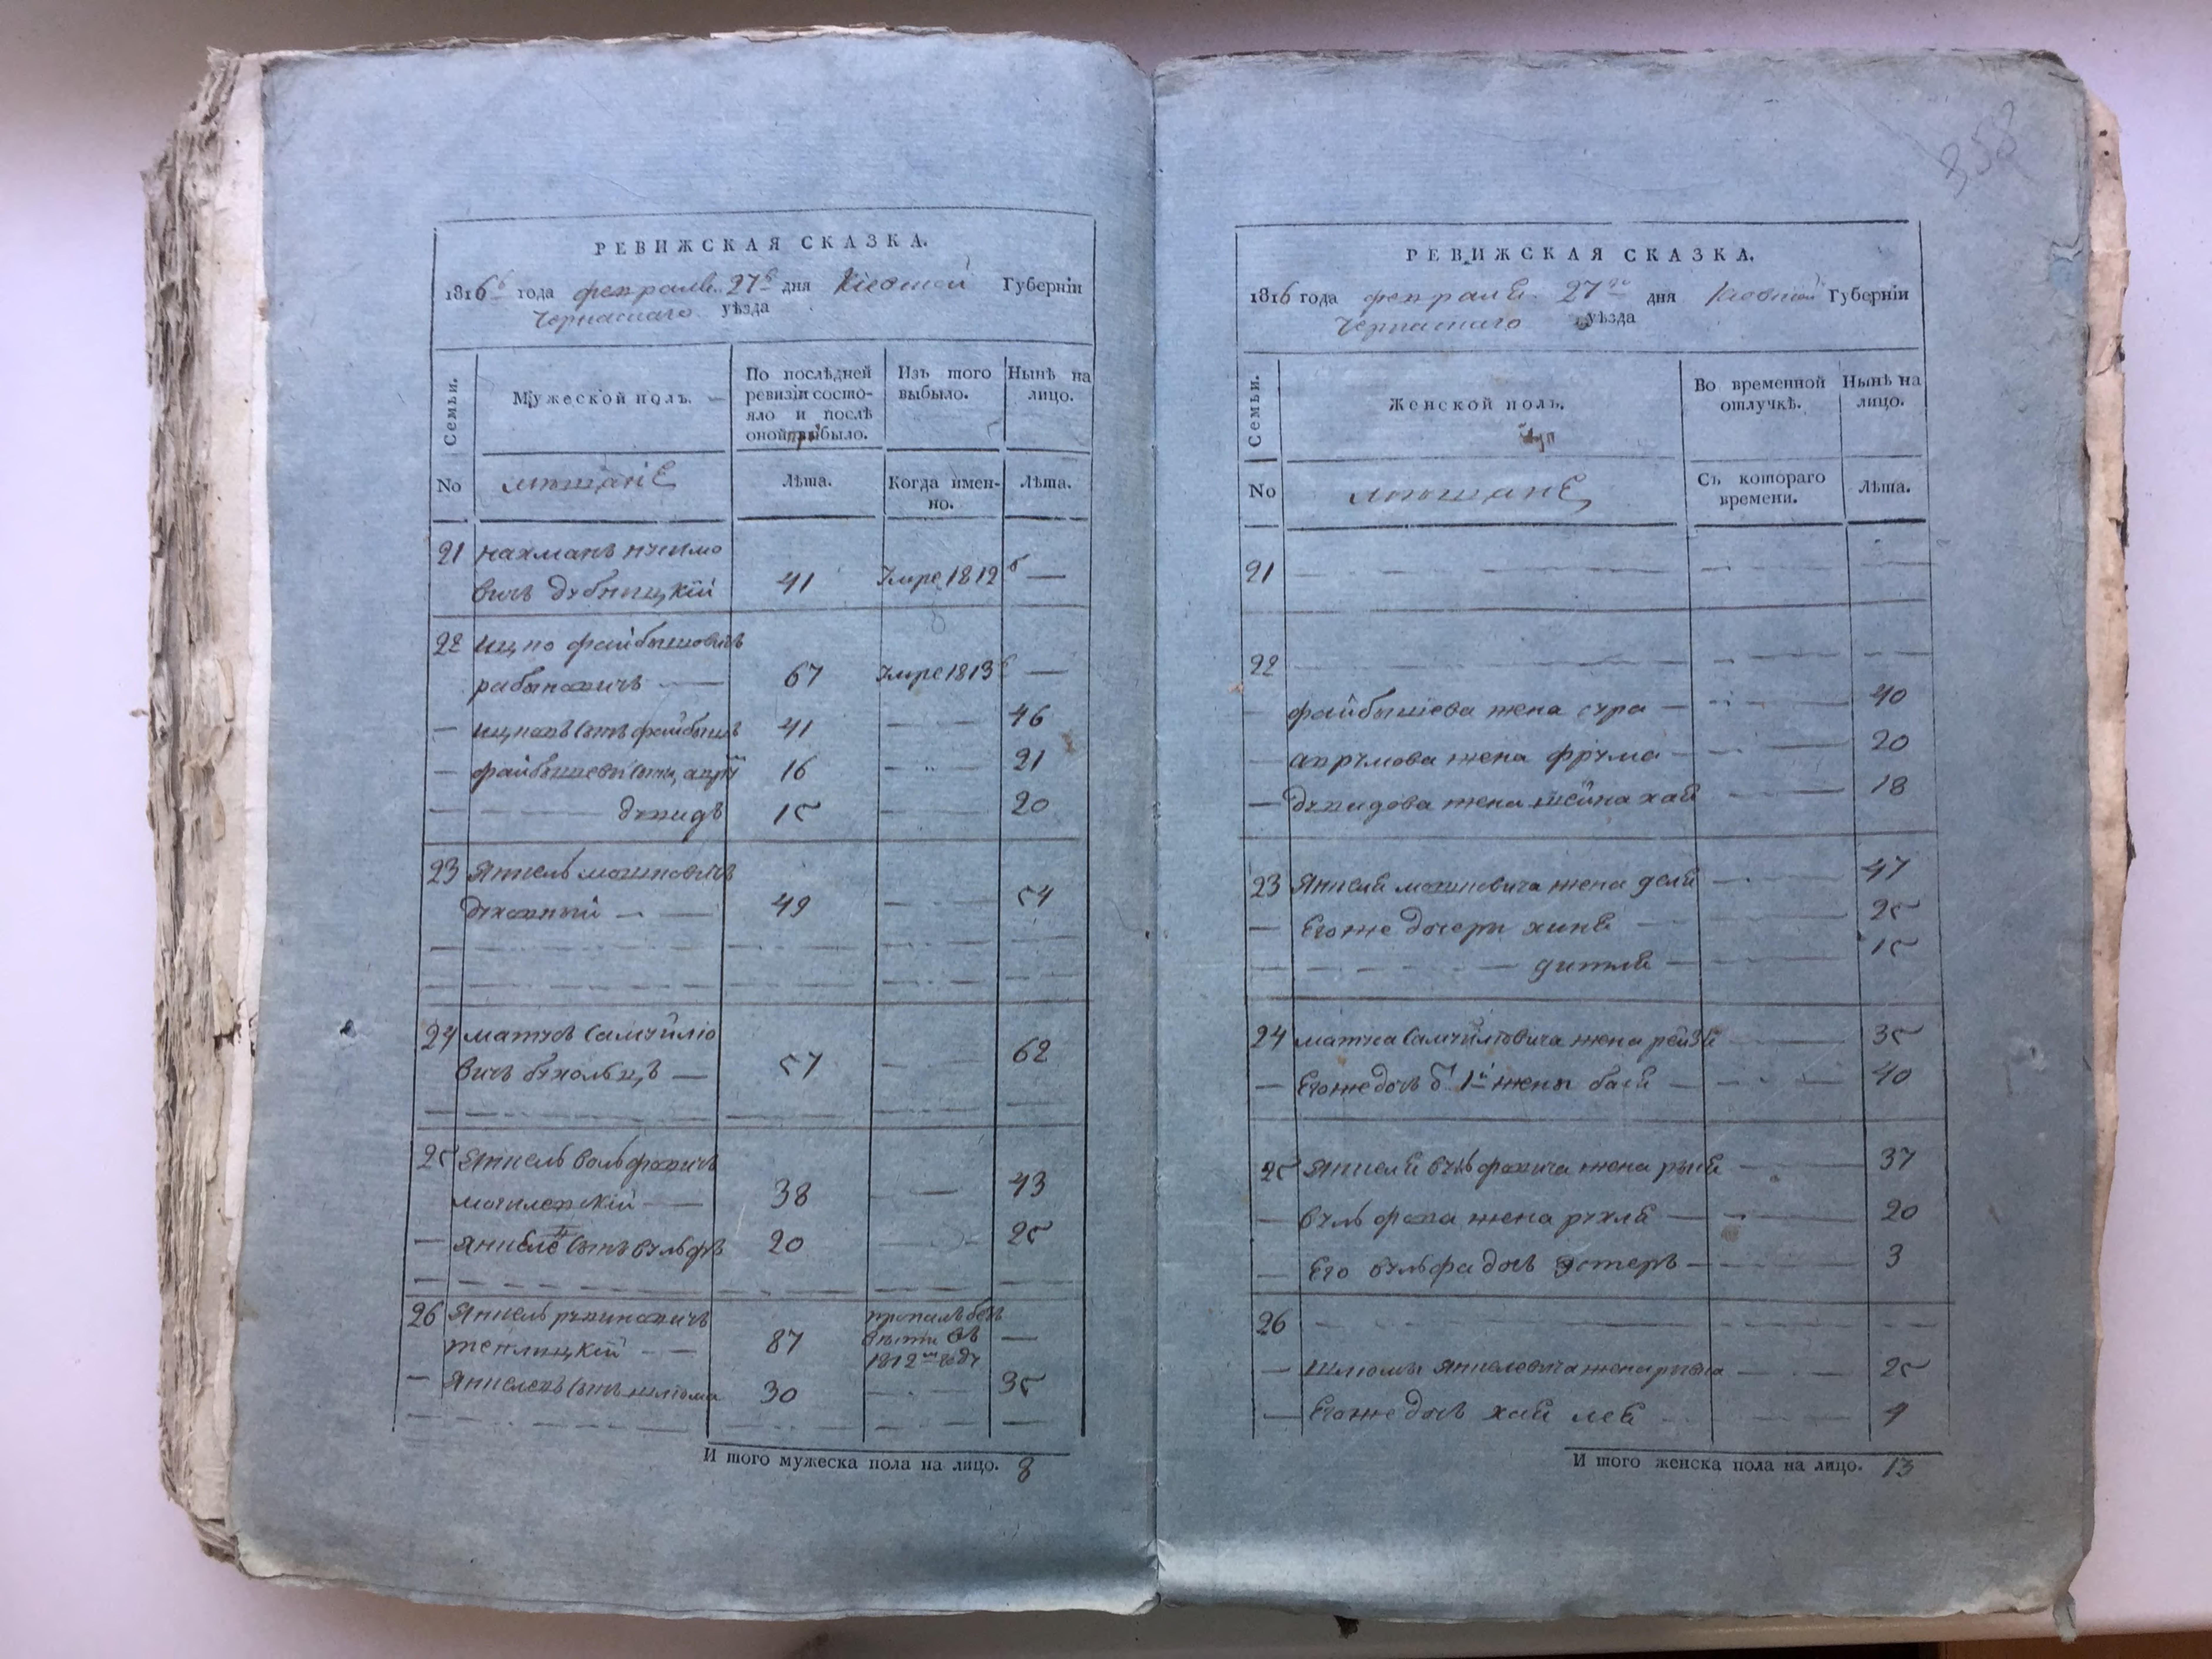 358
РЕВИЖСКАЯ СКАЗКА.
1816 года февраля 27 дня Кіевской Губерніи
Черкаскаго уѣзда
Семьи.
Мужеской полъ.
По послѣдней ревизіи состо-
яло и послѣ
оной прибыло.
Изъ того
выбыло.
Нынѣ на
лицо.
No мѣщане Лѣта. Когда имен-
но.
Лѣта.
21 нахманъ
вичъ дубницкій 41 Умре 1812 —
22 ицко файбышовичъ
рабыновичъ — 67 Умре 1813 —
— ицковъ сынъ файбышъ 41 — 46
— файбышевы сыны, аврум 16 — 21
— давидъ 15 — 20
23 Янкель мошковичъ
духовный — 49 — 54
24 матусъ самуйло
вичъ — 57 — 62
25 Янкель волфовичъ
могилевскій — 38 — 43
— Янкеля сынъ вульфъ 20 — 25
26 Янкель рувиновичъ
теплицкій — 87 пропалъ безъ
вѣсти въ
1812 году —
— Янкелевъ сынъ шлюома 30 — 35
И того мужеска пола на лицо. 8
РЕВИЖСКАЯ СКАЗКА.
1816 года февраля 27 дня Кіевской Губерніи
Черкаскаго уѣзда
Семьи.
Женской полъ.
Во временной
отлучкѣ.
Нынѣ на
лицо.
No мѣщане Съ котораго
времени.
Лѣта.
21 — — —
22 — — —
— файбышева жена сура — 40
— аврумова жена фрума — 20
— давидова жена шейна хая — 18
23 Янкеля мошковича жена — 47
— Егоже дочери хиня — 25
— дитля — 15
24 матуса самуйловича жена рейзя — 35
— Егоже дочь 1й жены бася — 40
25 Янкеля вульфовича жена — 37
— вульфова жена рухля — 20
— Его вульфа дочь эстеръ — 3
26 — — —
— Шлюомы Янкелевича жена ривка — 25
— Егоже дочь хая лея — 4
И того женска пола на лицо. 13